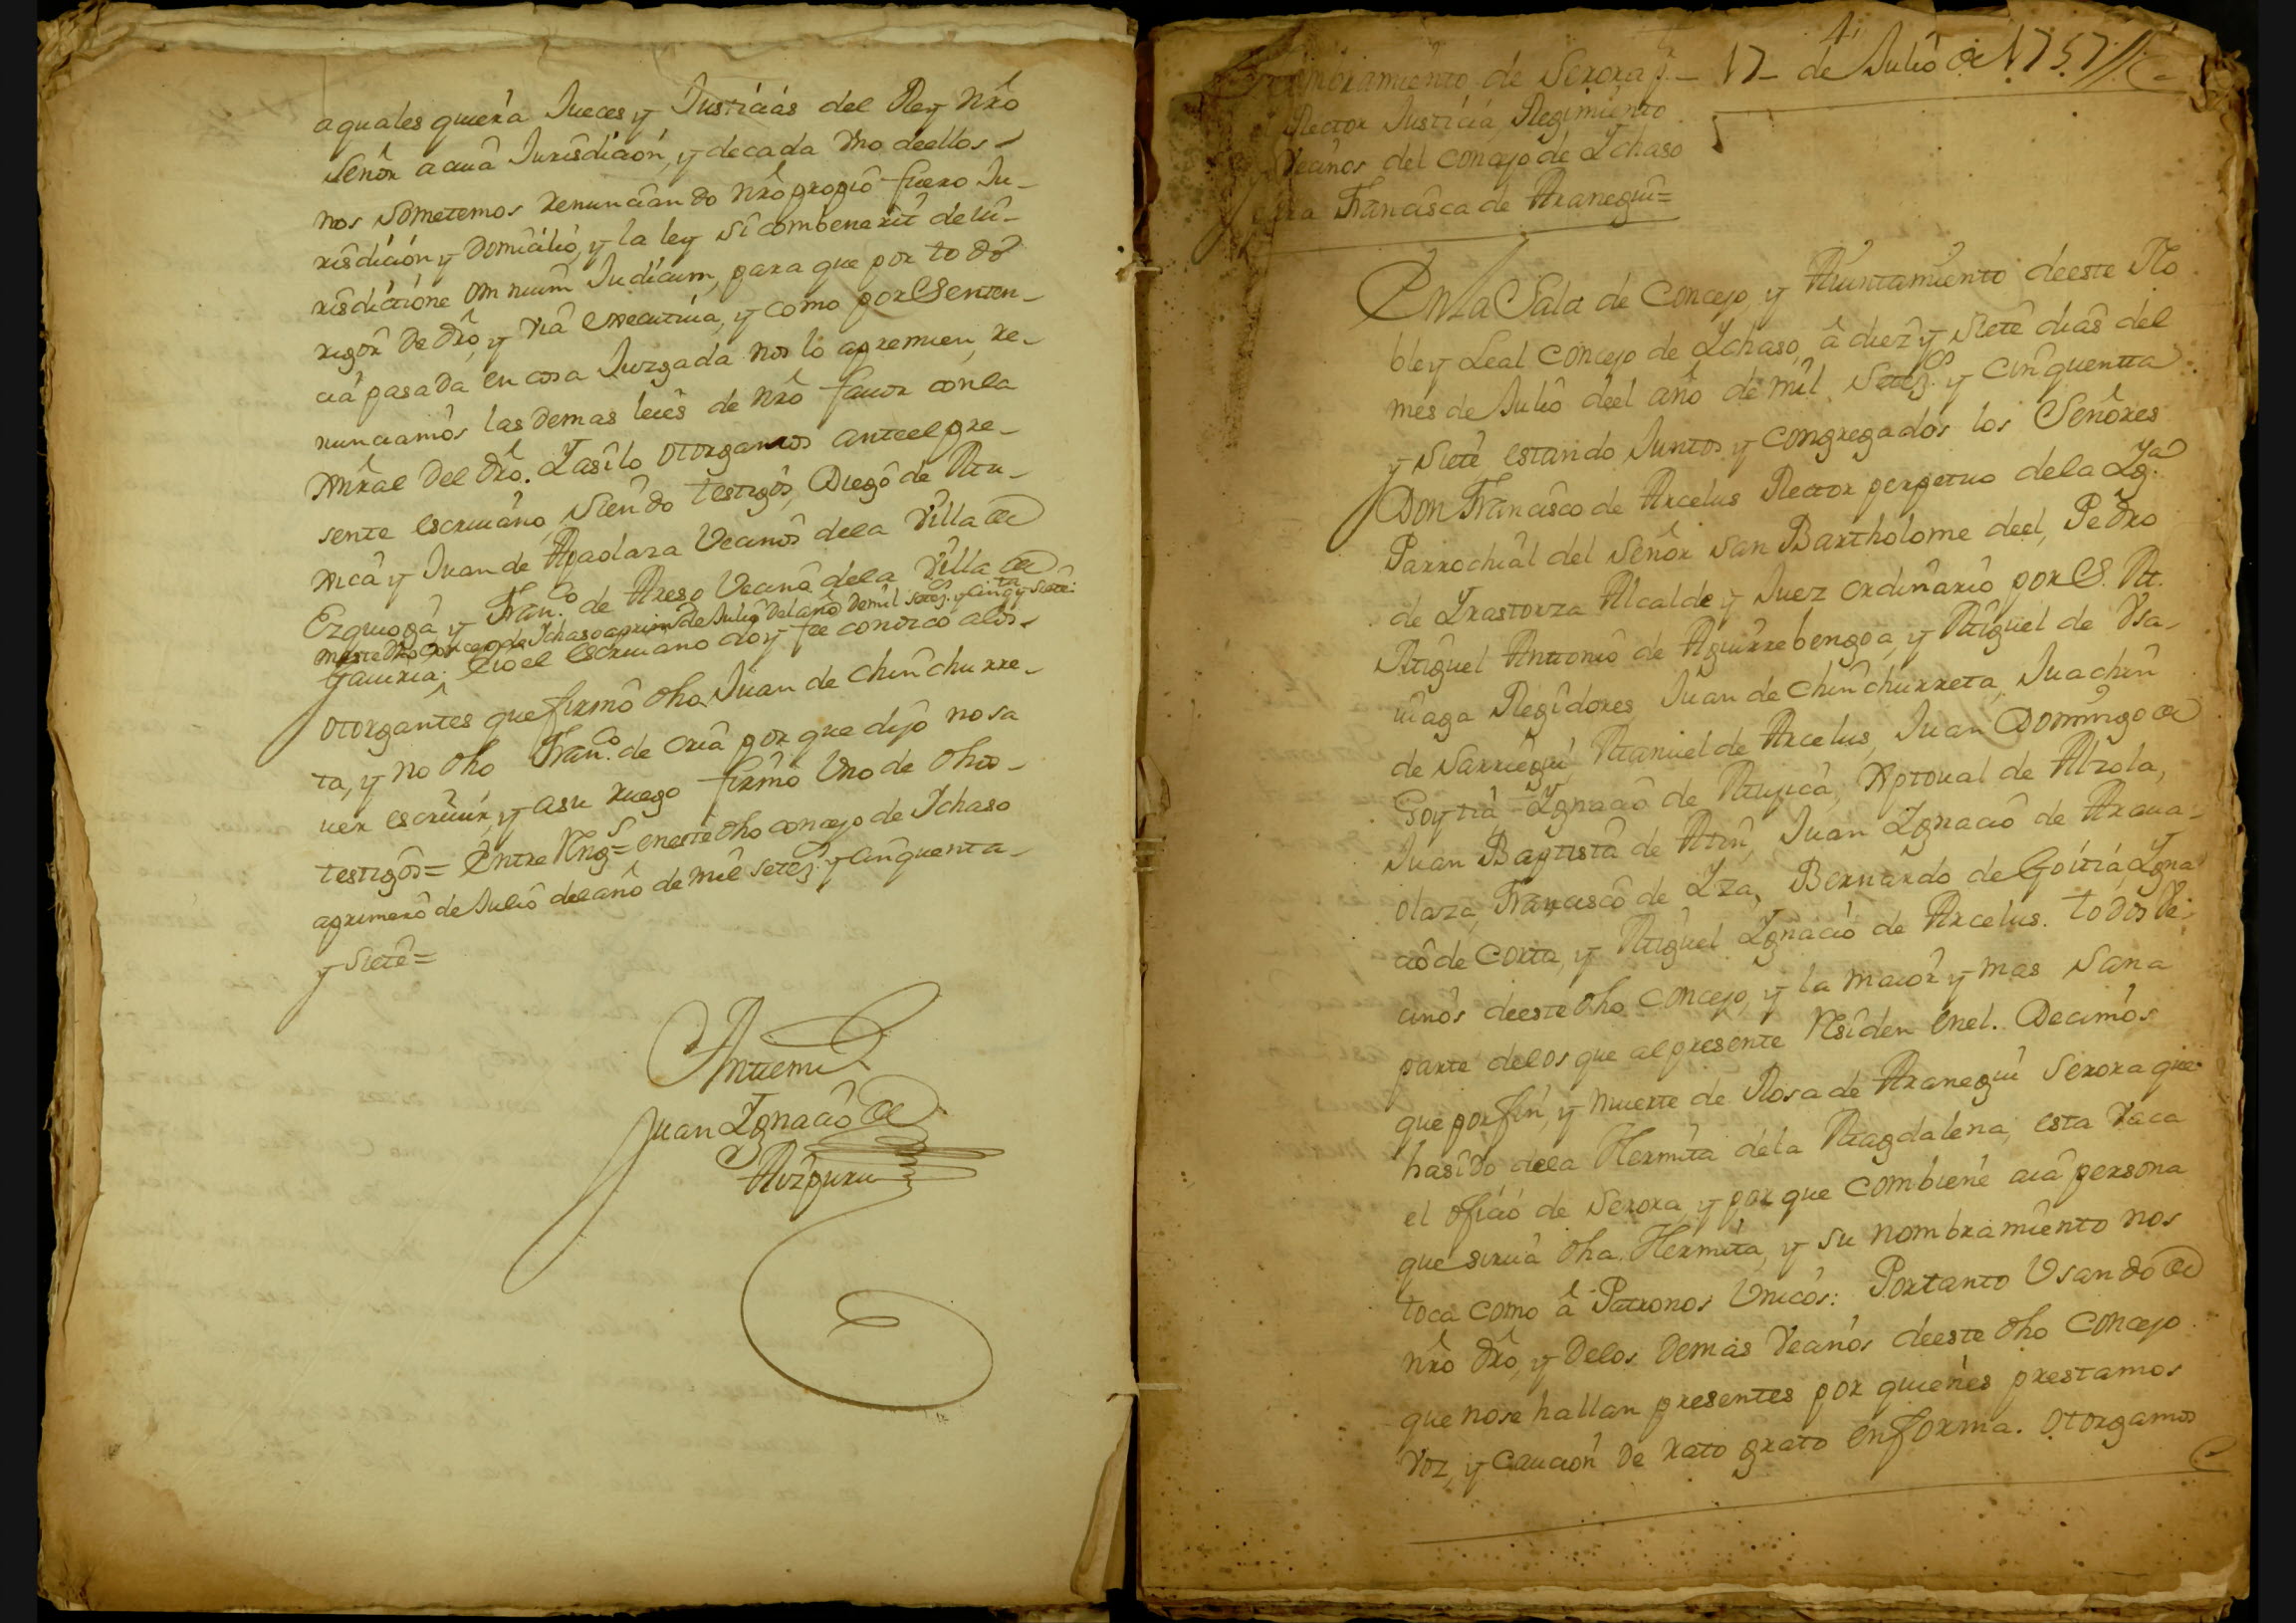 aqualesquiera Jueces y Justicias del Rey Nrô
Señor a cuia Jurisdicion, y de cada Vno deellos
nos sometemos renunciando Nrô propio fuero Ju-
risdicion y Domicilio, y la ley si combenerit de iu-
risdictione omnium Judicum, para que por todo
rigor de drô, y via executiua, y como por Senten-
cia pasada en cosa Juzgada nos lo apremien, re-
nunciamos las demas leies de Nrô fauor con la
del drô. Y asi lo otorgamos ante el pre-
sente escriuano, siendo testigos, Diego de Mu-
xica y Juan de Apaolaza Vecinos dela Villa de
Ezquioga y Fran.co de Areso Vecino dela Villa de
de Ichaso a primero de Julio del año de mil setez.s y cinq.ta y siete:
Gauiria: Eio el escriuano doy fee conozco alos
otorgantes que firmô dho Juan de Chinchurre-
ta, y no dho Fran.co de Oria por que dijo no sa
uer escriuir, y asu ruego firmô Vno de dhos
testigos = Entre Rng.s = eneste dho concejo de Ichaso
aprimero de Julio del año de mil setez.s y cinquenta
y siete =
Antemi
Juan Ygnacio de
Aizpuru
4
Nombramiento de Serora p.r - 17 - de Julio de 1757
el Rector Justicia Regimiento
Vecinos del concejo de Ychaso
para Francisca de Aranegui =
En la Sala de Concejo y Aiuntamiento deeste No
ble y Leal Concejo de Ychaso, â diez y siete dias del
mes de Julio deel año de mil Setez.s y Cinquentta
y Siete estando Juntos y congregados los Señores
Don Francisco de Arcelus Rector perpetuo dela Yg.a
Parrochial del Señor San Bartholome deel, Pedro
de Yrastorza Alcalde y Juez ordinario por S. M.
Miguel Anttonio de Aguirrebengoa, y Miguel de Vsa-
uiaga Regidores, Juan de Chinchurreta, Juachin
de Sarriegui Manuel de Arcelus, Juan Domingo de
Goytia Ygnacio de Mujica, Xptoual de Alzola,
Juan Baptista de Atin, Juan Ygnacio de Araua-
olaza, Francisco de Yza, Bernardo de Goitia, Ygna
cio de Corta, y Miguel Ygnacio de Arcelus. todos Ve-
cinos deeste dho concejo, y la maior y mas sana
parte delos que alpresente Residen enel. Decimos
que por fin, y muerte de Rosa de Aranegui Serora que
hasido dela Hermita dela Magdalena, esta Vaca
el oficio de Serora, y por que combiene aia persona
que sirua dha Hermita, y su nombramiento nos
toca como â Patronos Vnicos: Portanto Vsando de
nrô drô, y delos demas Vecinos deeste dho concejo
que nose hallan presentes por quienes prestamos
Voz, y caucion de rato grato en forma. otorgamos